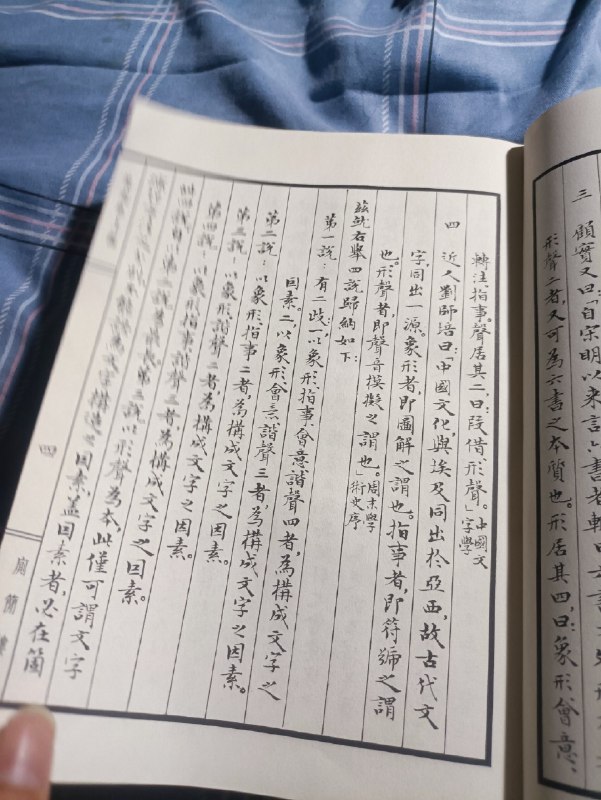 三 顧實又曰:「自宋明以來言六書者
形聲二者,又可為六書之本質也。形居其四,曰:象形會意,
轉注,指事。聲居其二曰:叚借形聲。」中國文字學
四 近人劉師培曰:「中國文化,與埃及同出於亞西,故古代文
字,同出一源。象形者,即圖解之謂也。指事者,即符號之謂
也。形聲者,即聲音摸擬之謂也。」周末學術史序
茲就右舉四說歸納如下:
第一說:有二歧,一以象形,指事,會意諧聲四者,為構成文字之
因素。二,以象形會意諧聲三者,為構成文字之因素。
第二說:以象形,指事二者,為構成文字之因素。
第三說:以象形諧聲二者,為構成文字之因素。
第四說:以象形指事諧聲三者為構成文字之因素。
第三說以形聲為本,此僅可謂文字
構造之因素,蓋因素者,必在箇
四
簡